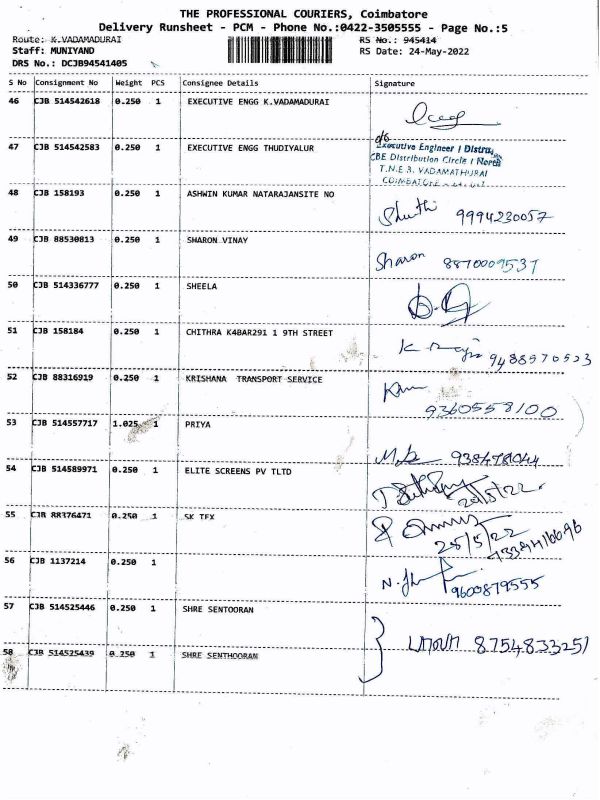 THE PROFESSIONAL COURIERS, Coimbatore
Delivery Runsheet - PCM - Phone No.:0422-3505555 - Page No.:5
Route: K.VADAMADURAI
RS No.: 945414
Staff: MUNIYAND
RS Date: 24-May-2022
DRS No.: DCJB94541405
S No Consignment No Weight PCS Consignee Details Signature
46 CJB 514542618 0.250 1 EXECUTIVE ENGG K.VADAMADURAI
47 CJB 514542583 0.250 1 EXECUTIVE ENGG THUDIYALUR
Executive Engineer / Distrn
CBE Distribution Circle / North
T.N.E.B. VADAMATHURAI
48 CJB 158193 0.250 1 ASHWIN KUMAR NATARAJANSITE NO
9994230057
49 CJB 88530813 0.250 1 SHARON VINAY
Sharon 8870009537
50 CJB 514336777 0.250 1 SHEELA
51 CJB 158184 0.250 1 CHITHRA K4BAR291 1 9TH STREET
9488570523
52 CJB 88316919 0.250 1 KRISHANA TRANSPORT SERVICE
9360558100
53 CJB 514557717 1.025 1 PRIYA
54 CJB 514589971 0.250 1 ELITE SCREENS PV TLTD
55 CJB 88376471 0.250 1 SK TEX
25/5/22
56 CJB 1137214 0.250 1
9600879555
57 CJB 514525446 0.250 1 SHRE SENTOORAN
8754833251
58 CJB 514525439 0.250 1 SHRE SENTHOORAN